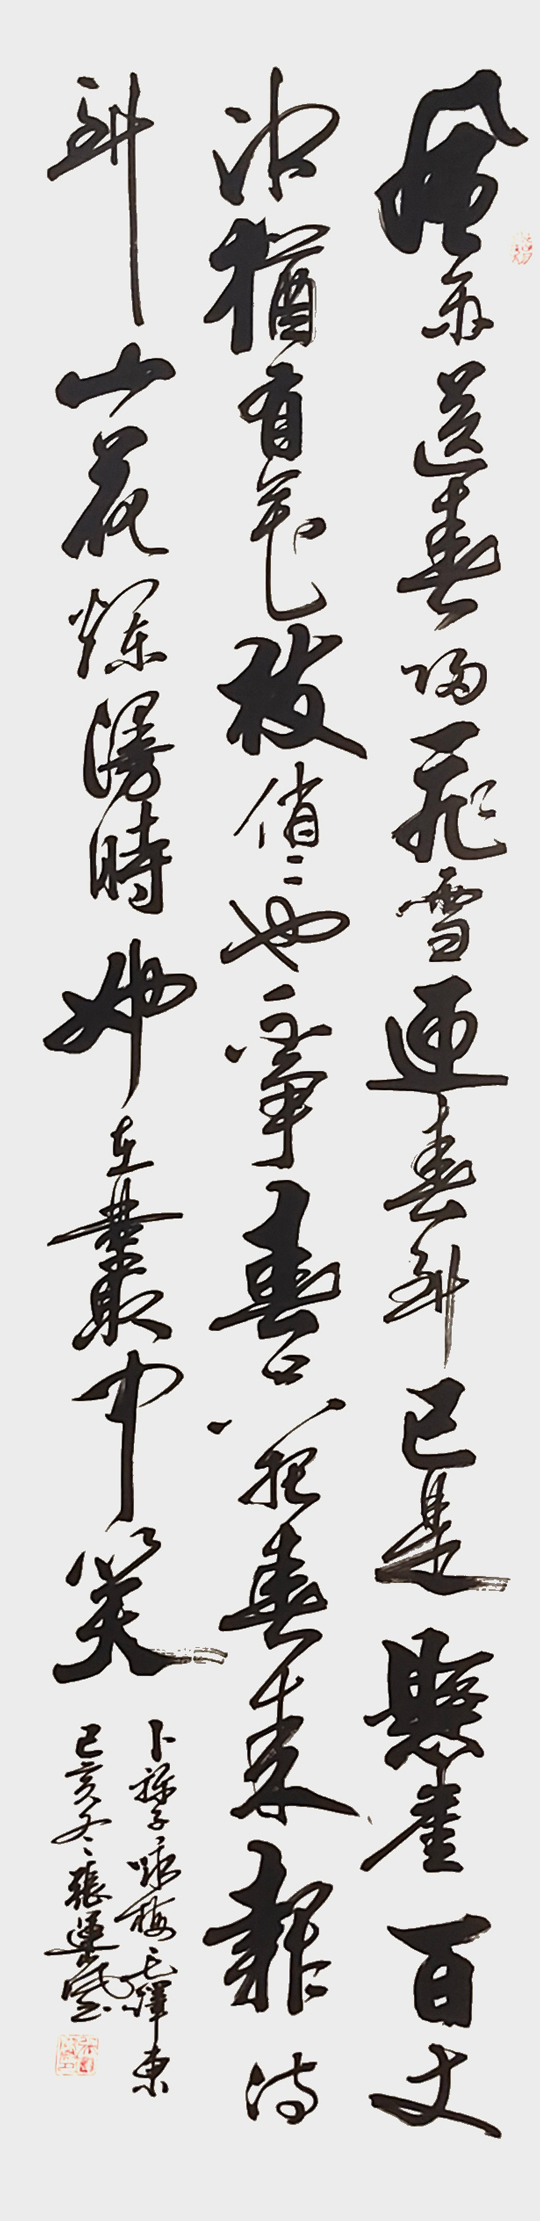 風雨送春歸飛雪迎春到已是懸崖百丈
冰猶有花枝俏俏也不爭春只把春來報待
到山花爛漫時她在叢中笑
卜算子咏梅毛澤東
己亥冬張運